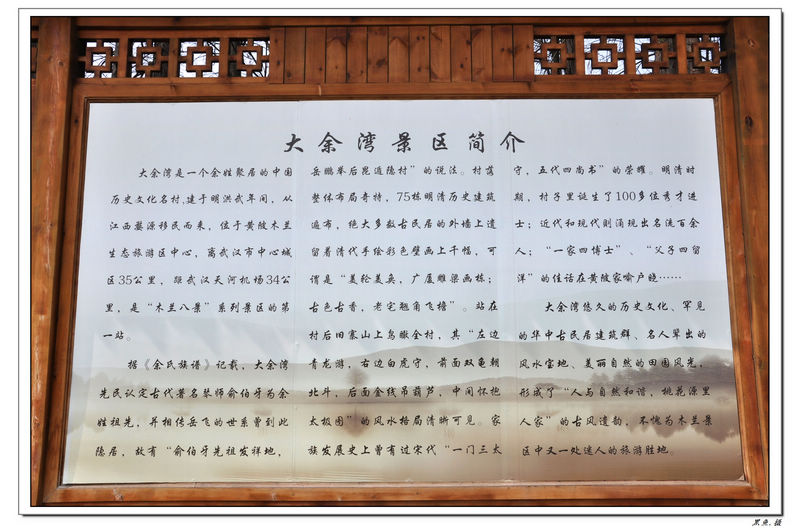 大余湾景区简介
大余湾是一个余姓聚居的中国
历史文化名村,建于明洪武年间，从
江西婺源移民而来，位于黄陂木兰
生态旅游区中心，离武汉市中心城
区35公里，距武汉天河机场34公
里，是“木兰八景”系列景区的第
一站。
据《余氏族谱》记载，大余湾
先民认定古代著名琴师俞伯牙为余
姓祖先，并相传岳飞的世系曾到此
隐居，故有“俞伯牙先祖发祥地，
岳鹏举后昆遁隐村”的说法。村落
整体布局奇特，75栋明清历史建筑
遍布，绝大多数古民居的外墙上遗
留着清代手绘彩色壁画上千幅，可
谓是“美轮美奂，广厦雕梁画栋；
古色古香，老宅翘角飞檐”。站在
村后旧寨山上鸟瞰全村，其“左边
青龙游，右边白虎守，前面双龟朝
北斗，后面金线吊葫芦，中间怀抱
太极图”的风水格局清晰可见。家
族发展史上曾有过宋代“一门三太
守，五代四尚书”的荣耀。明清时
期，村子里诞生了100多位秀才进
士；近代和现代则涌现出名流百余
人；“一家四博士”、“父子四留
洋”的佳话在黄陂家喻户晓……
大余湾悠久的历史文化、罕见
的华中古民居建筑群、名人辈出的
风水宝地、美丽自然的田园风光，
形成了“人与自然和谐，桃花源里
人家”的古风遗韵，不愧为木兰景
区中又一处迷人的旅游胜地。
黑鱼.摄